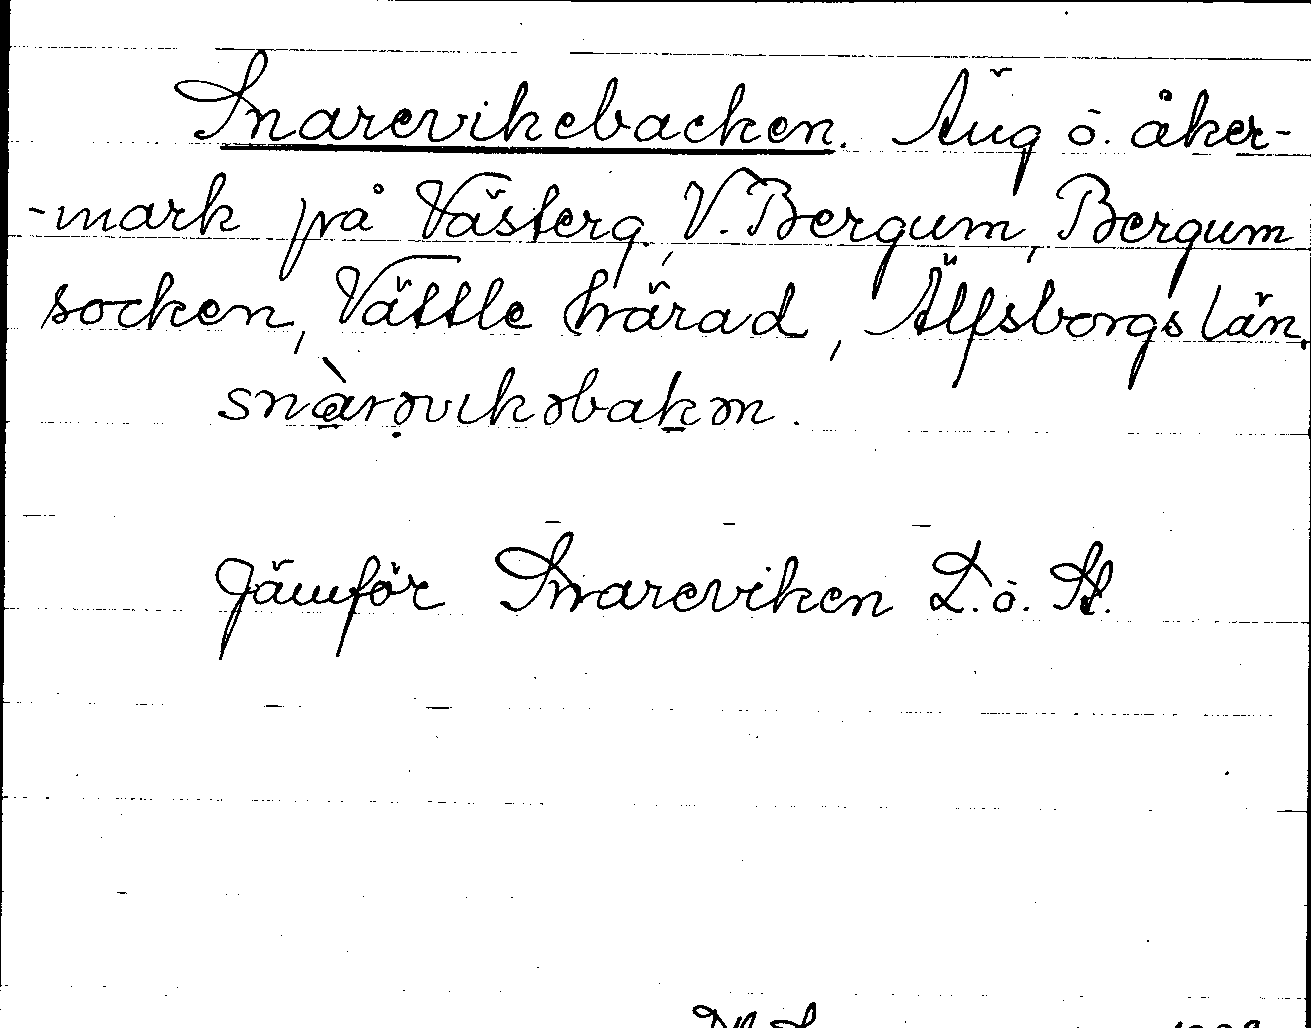 Snarevikebacken. Äng o. åker-
-mark på Västerg., V. Bergum, Bergum
socken, Vättle härad, Älfsborgs län.
snàrəvikəbakən.
Jämför Snareviken L. o. St.